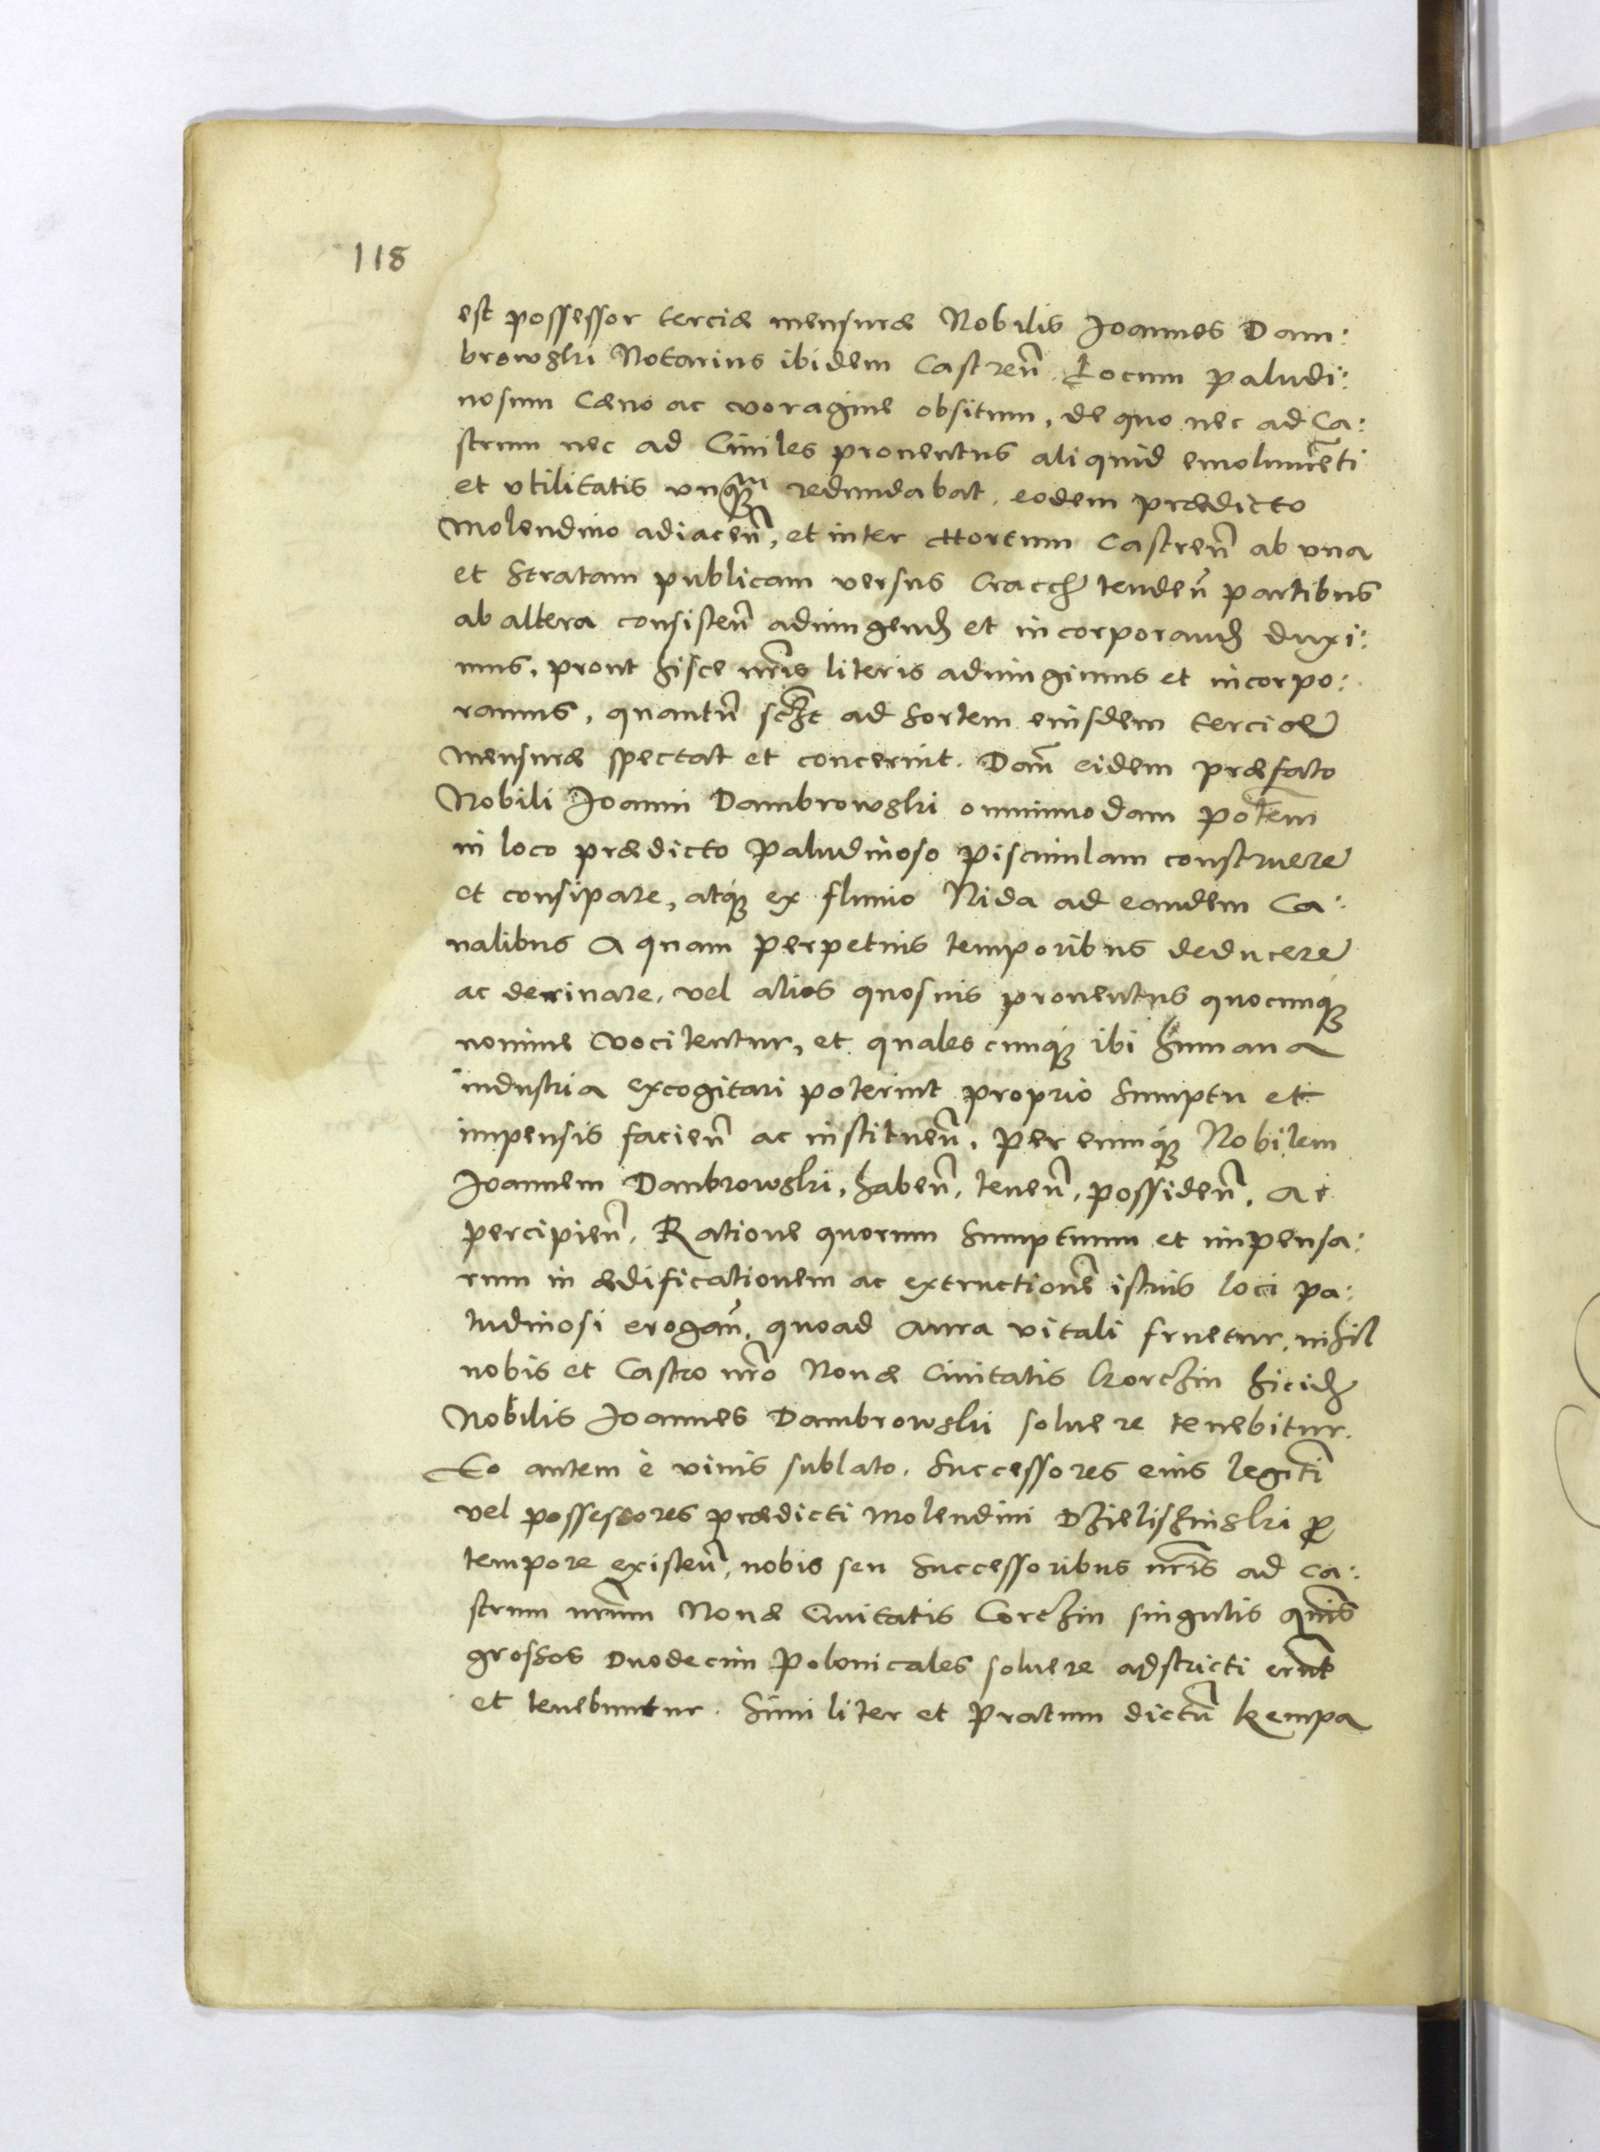 118
est possessor terciæ mensuræ Nobilis Joannes Dam:
browski Notarius ibidem Castreñ Locum paludi:
nosum Cæno ac voragine obsitum, de quo nec ad Ca:
strum nec ad Ciuiles prouentus aliquid emolumēti
et vtilitatis vnq̃m redundabat, eodem prædicto
Molendino adiaceñ, et inter Hortum Castreñ ab vna
et Stratam publicam versus tendeñ partibus
ab altera consisteñ adiungend et incorporand duxi:
mus, prout hisce nr̃is literis adiungimus et incorpo:
ramus, quantũ ad Sortem eiusdem terciæ
Mensuræ spectat et concernit. Dam̃ eidem præfato
Nobili Joanni Dambrowski omnimodam potem̃
in loco prædicto Paludinoso Piscinulam construere
et consipare, atq́ꝫ ex fluuio Nida ad eandem Ca:
nalibus Aquam perpetuis temporibus deducere
ac deriuare, vel alios quosuis prouentus quocunq́ꝫ
nomine vocitentur, et qualescunq́ꝫ ibi humana
industria excogitari poterint proprio Sumptu et
impensis facieñ ac institueñ, per eumq́ꝫ Nobilem
Joannem Dambrowski, habeñ, teneñ, possideñ, Ac
percipieñ, Ratione quorum Sumptuum et impensa:
rum in ædificationem ac extructionẽ istius loci pa:
ludinosi erogañ, quoad Aura vitali fruetur, nihil
nobis et Castro nr̃o Nouæ Ciuitatis Korczin
Nobilis Joannes Dambrowski soluere tenebitur.
Eo autem è viuis sublato, Successores eius legitĩ
vel possessores prædicti Molendini Dzieliszinski ꝓ
tempore existeñ, nobis seu Successoribus nr̃is ad Ca:
strum nrũm Nouæ Ciuitatis Corczin singulis
grossos Duodecim Polonicales soluere adstricti erũt
et tenebuntur. Similiter et Pratum dictũ Kempa